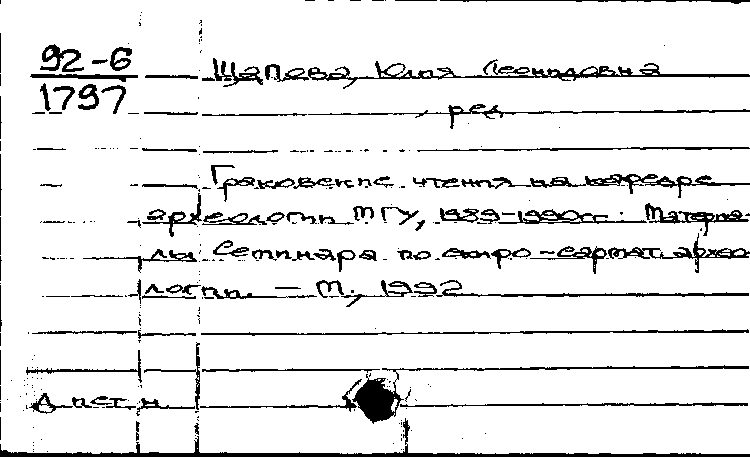 92-6
1797
Щапова, Юлия Леонидовна
, ред.
Граковские чтения на кафедре
археологии МГУ, 1989-1990гг. Материа-
лы Семинара по скифо-сармат. архео-
логии. — М., 1992
Д ист. н.